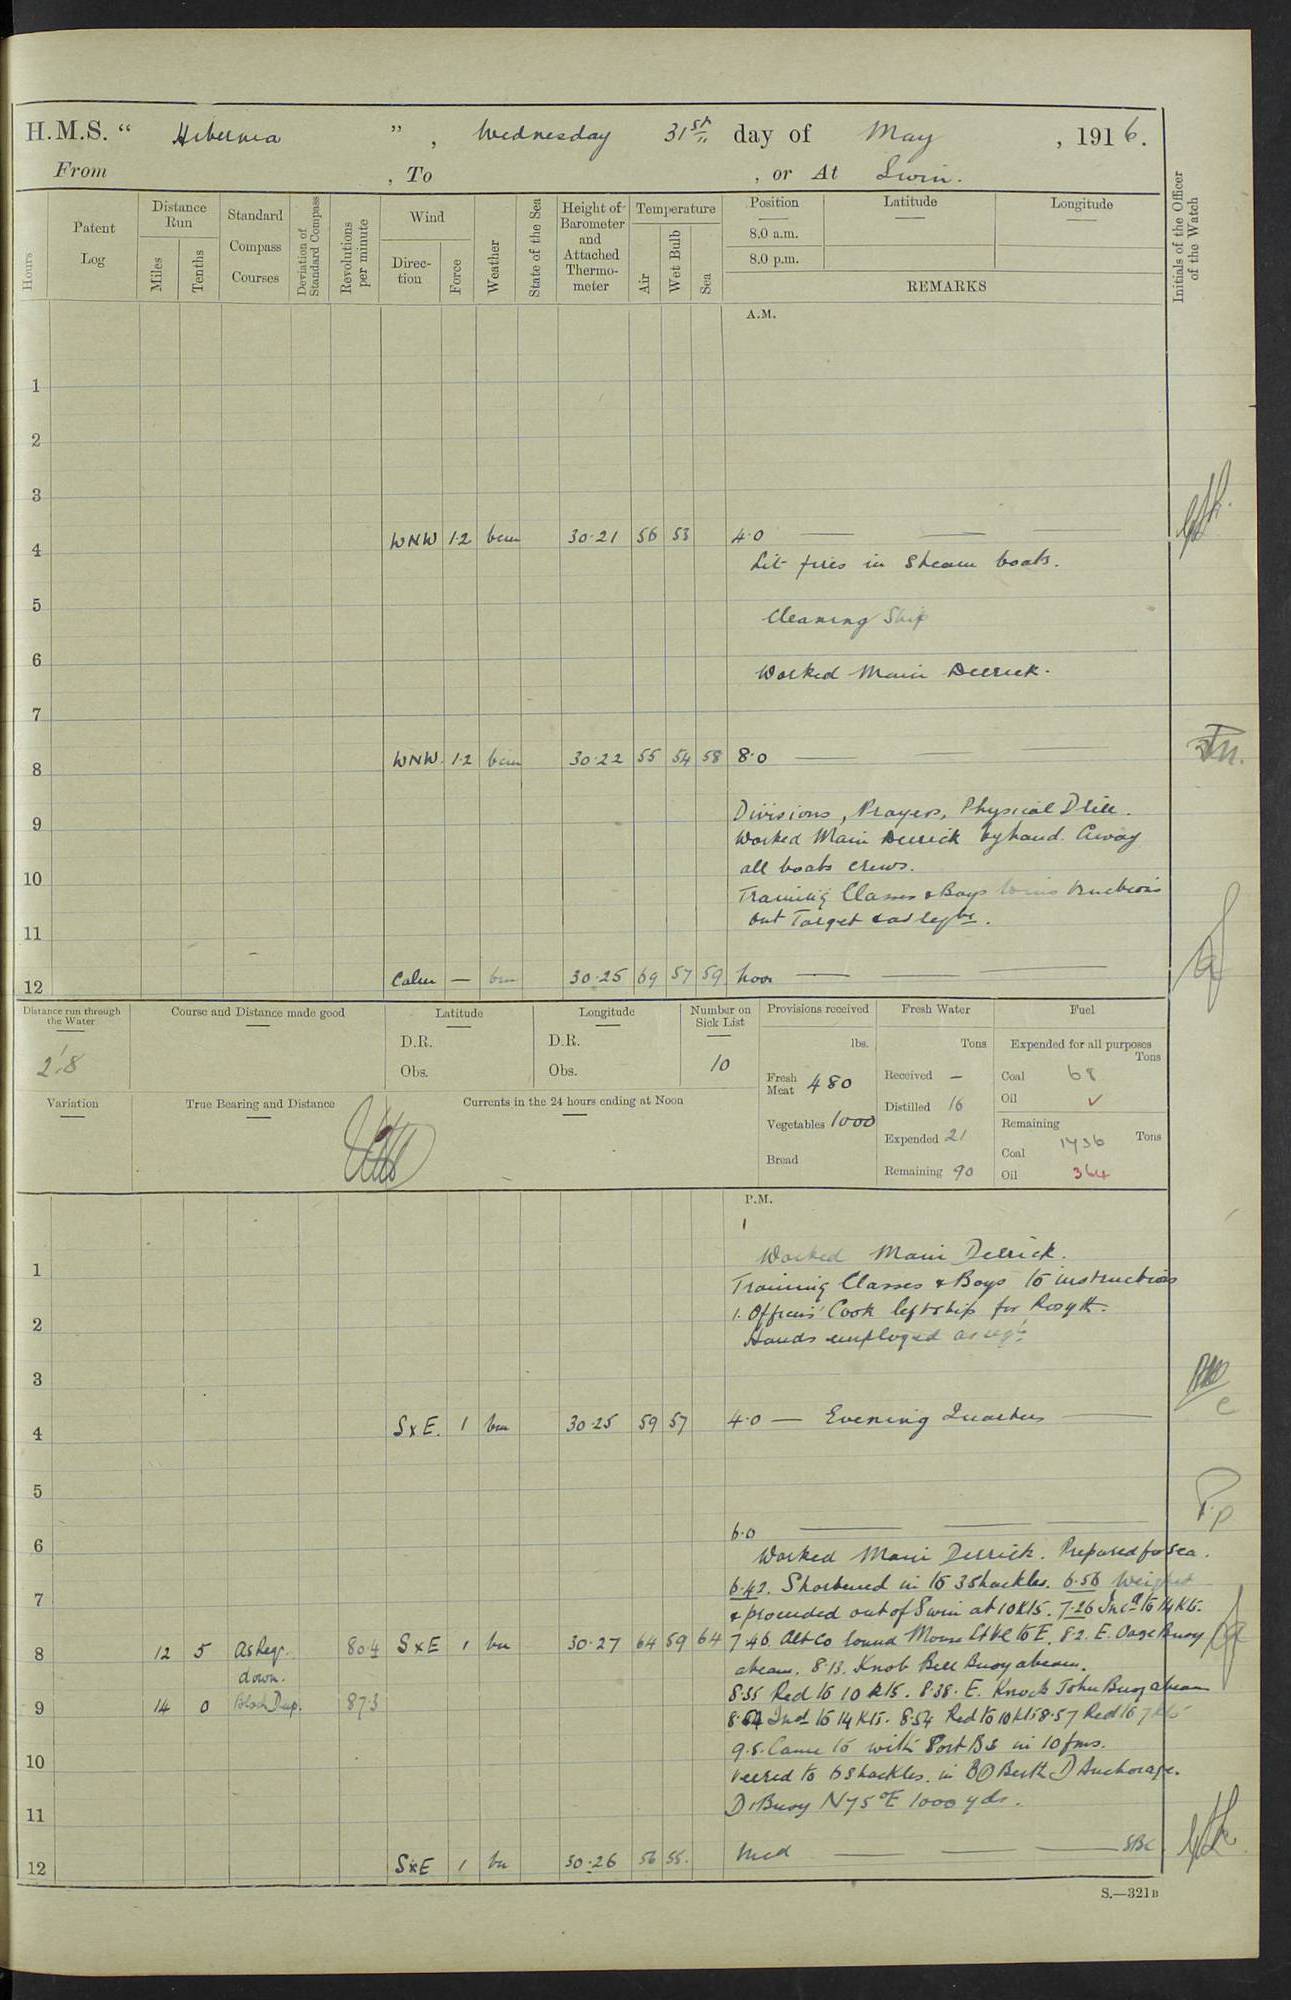 H.M.S. “ Hibernia ” , Wednesday 31st day of May , 1916.
From , To , or At Swin.
Hours
Patent Log
Distance Run
Miles
Tenths
Standard Compass Courses
Deviation of Standard Compass
Revolutions per minute
Wind
Direction
Force
Weather
State of the Sea
Height of Barometer and Attached Thermometer
Temperature
Air
Wet Bulb
Sea
Position
8.0 a.m.
8.0 p.m.
Latitude
Longitude
REMARKS
Initials of the Officer of the Watch
A.M.
1
2
3
4 WNW 1.2 bcm 30.21 56 53 4.0
Lit fires in Steam boats.
5
Cleaning Ship
6
Worked Main Derrick.
7
8 WNW 1.2 bcm 30.22 55 54 58 8.0
Divisions, Prayers, Physical Drill.
9
Worked Main Derrick by hand. Away
all boats crews.
10
Training Classes & Boys to instructions
out Target
11
12 Calm — bm 30.25 69 57 59 Noon
Distance run through the Water
2'.8
Course and Distance made good
Latitude
D.R.
Obs.
Longitude
D.R.
Obs.
Number on Sick List
10
Provisions received
lbs.
Fresh Meat 480
Vegetables 1000
Bread
Fresh Water
Tons
Received —
Distilled 16
Expended 21
Remaining 90
Fuel
Expended for all purposes
Tons
Coal 68
Oil ✓
Remaining
Tons
Coal 1436
Oil 364
Variation
True Bearing and Distance
Currents in the 24 hours ending at Noon
P.M.
Worked Main Derrick.
1
Training Classes & Boys to instructions
1. Officers' Cook left ship for Rosyth.
2
Hands employed as reqte
3
4 SxE. 1 bm 30.25 59 57 4.0 — Evening Quarters
5
6.0
6
Worked Main Derrick. Prepared for Sea.
6.42. Shortened in to 3 Shackles. 6.56 Weighed
7
& proceeded out of Swin at 10 Kts. 7.26 Incd to 14 Kts.
8 12 5 As Reqr. down. 804 SxE 1 bm 30.27 64 59 64 7.46. Alt Co round Mouse Lt Vl to E. 8.2. E. Oaze Buoy
abeam. 8.13. Knob Bell Buoy abeam.
8.35 Red to 10 Kts. 8.38. E. Knock John Buoy abeam
9 14 0 Black Deep. 873
8.54 Red to 10 Kts 8.57 Red to 7 Kts
9.5. Came to with Port BS in 10 fms.
10
Veered to 6 Shackles. in Berth D Anchorage.
D1 Buoy N75°E 1000 yds.
11
12 SxE 1 bm 30.26 56 55. Mid SBC
S.—321B